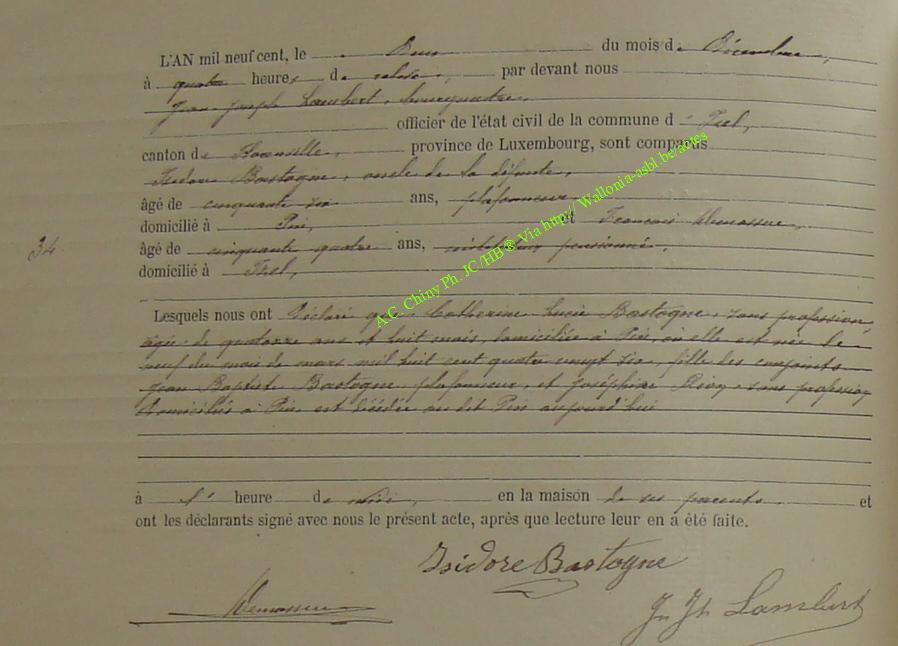 L'AN mil neuf cent, le onze du mois de Décembre,
à quatre heures de relevée, par devant nous
Jean Joseph Lambert, bourgmestre,
officier de l'état civil de la commune d'Izel,
canton de Florenville, province de Luxembourg, sont comparus
Isidore Bastogne, oncle de la défunte,
âgé de cinquante six ans, plafonneur
domicilié à Pin, et François
34
âgé de cinquante quatre ans, pensionné,
domicilié à Izel,
Lesquels nous ont déclaré que Catherine Lucie Bastogne, sans profession
âgée de quatorze ans et huit mois, domiciliée à Pin, où elle est née le
neuf du mois de mars mil huit cent quatre vingt six, fille des conjoints
Jean Baptiste Bastogne plafonneur, et Joséphine sans profession
domiciliés à Pin est décédée au dit Pin aujourd'hui
à l' heure de midi, en la maison de ses parents et
ont les déclarants signé avec nous le présent acte, après que lecture leur en a été faite.
Isidore Bastogne
Jn Jh Lambert
A.C. Chiny Ph. JC/HB® Via http// Wallonia-asbl.be/actes